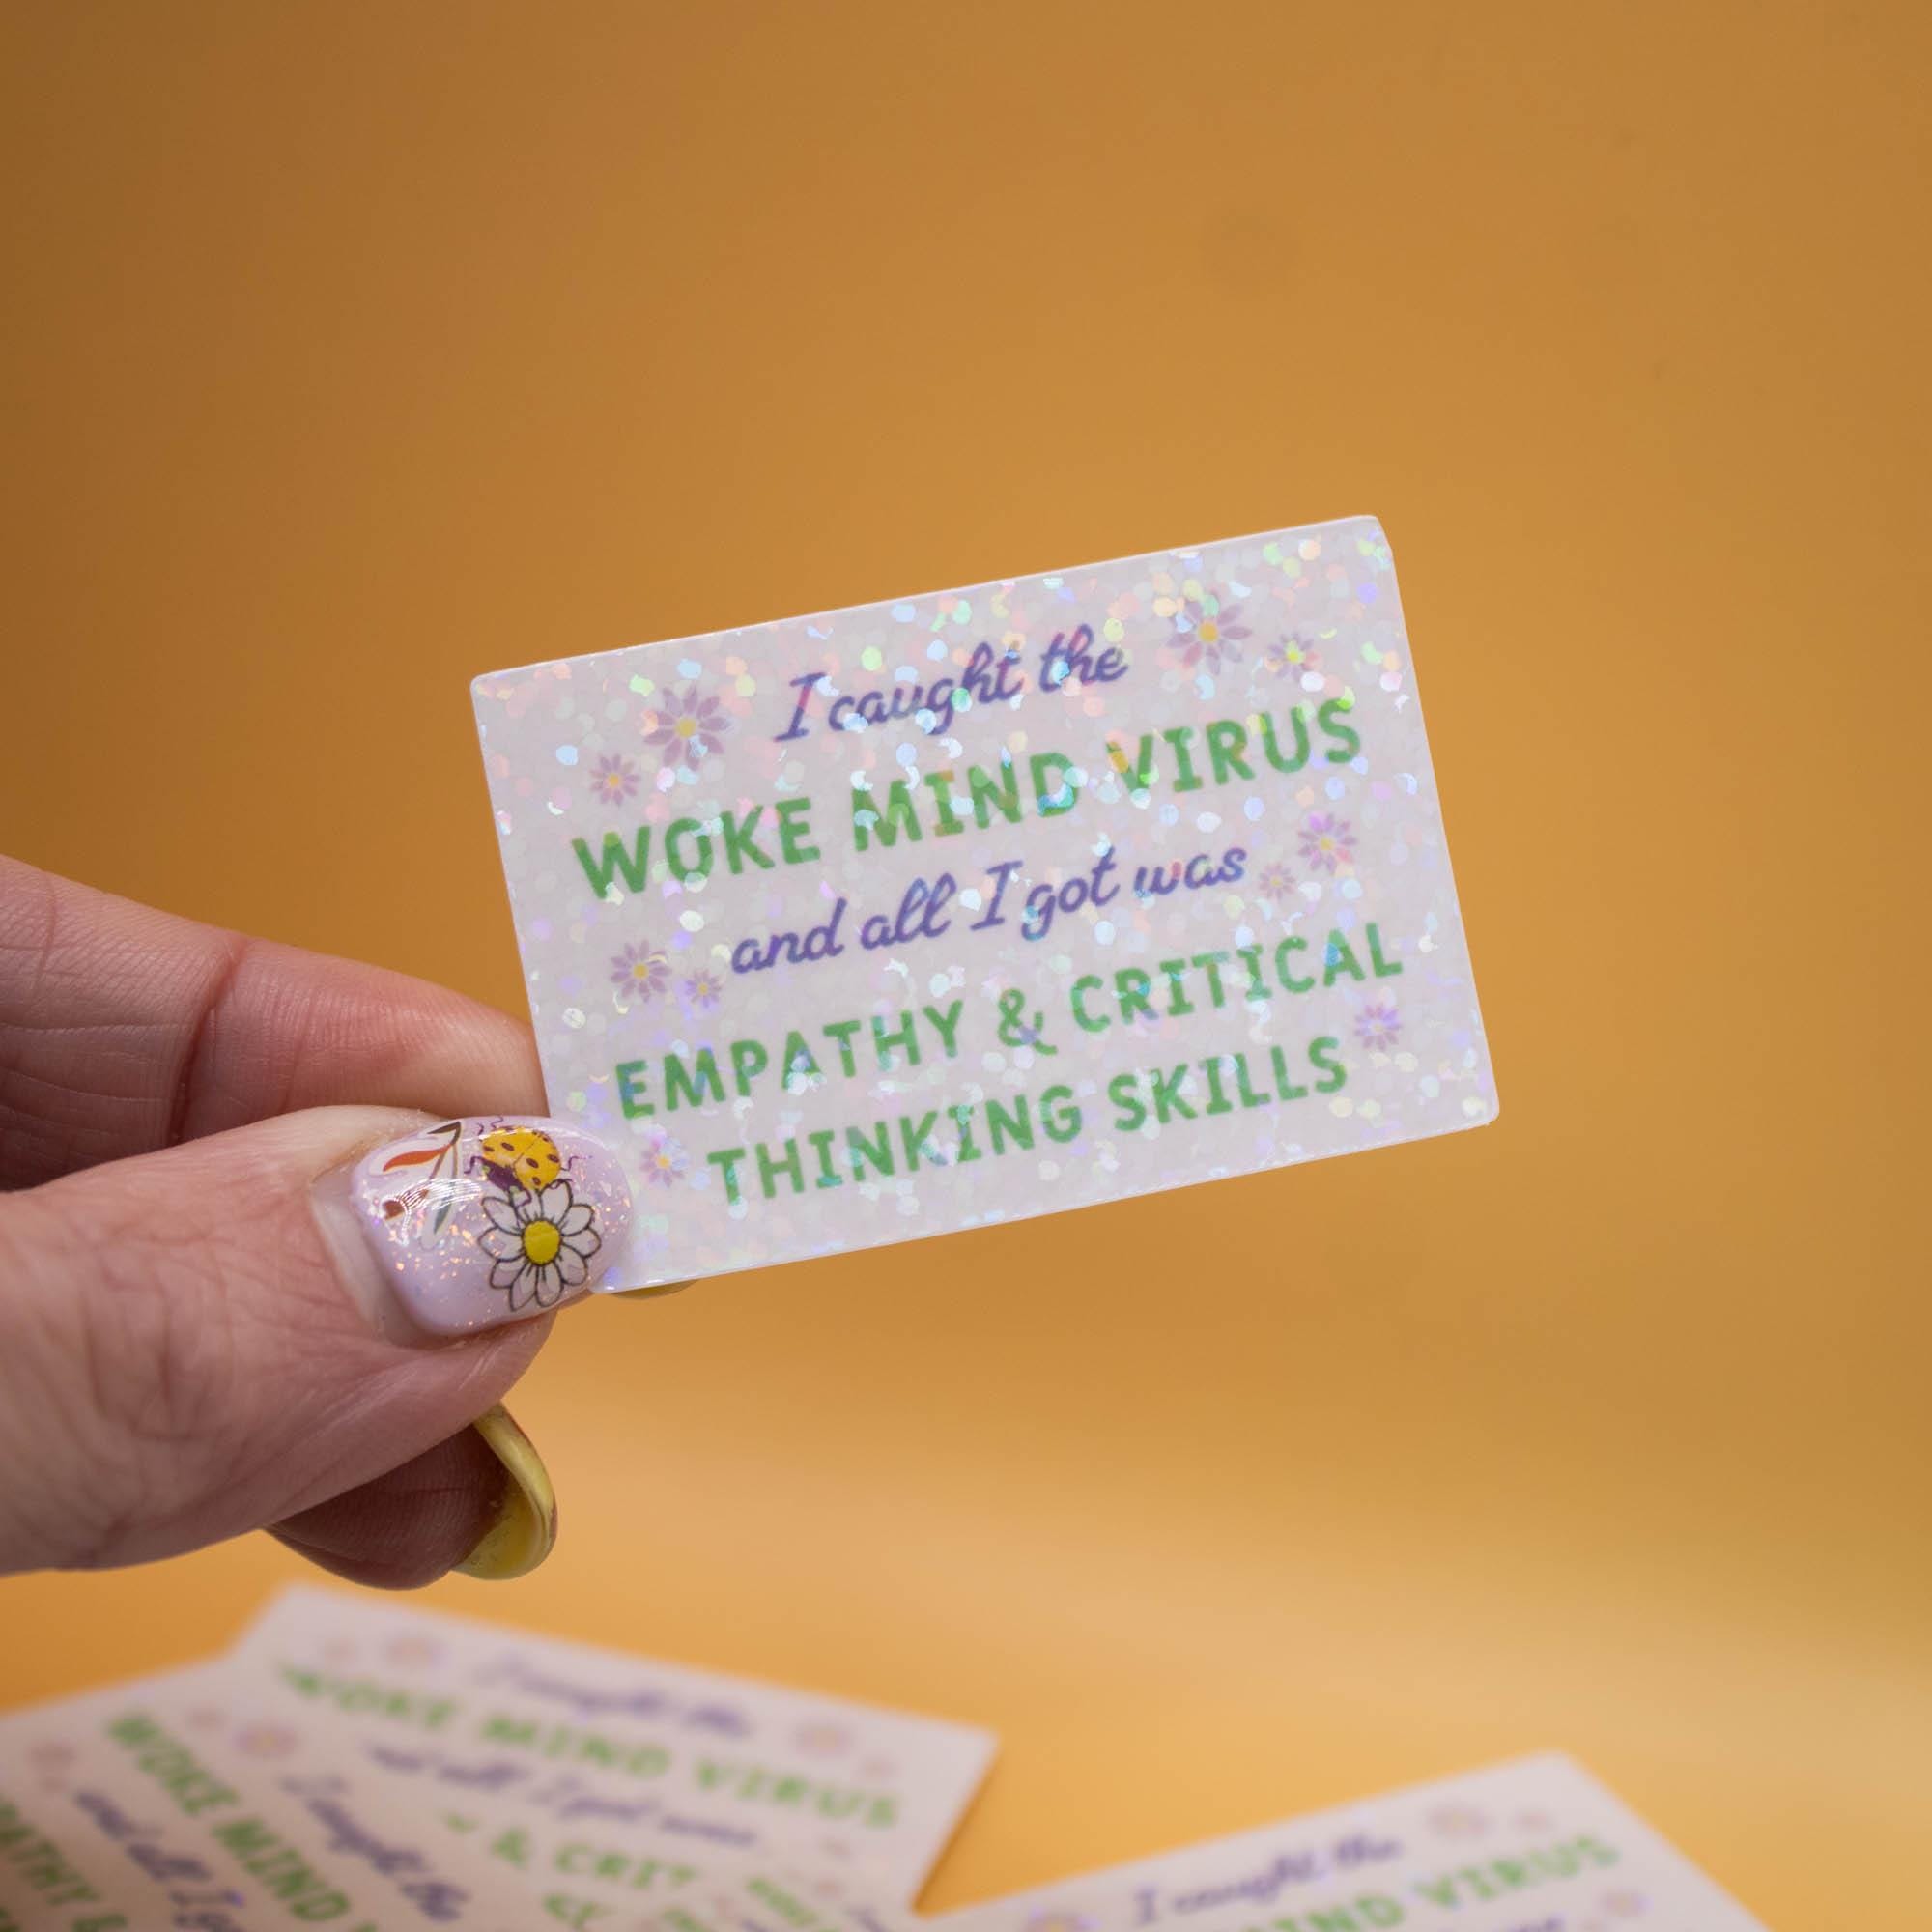 I caught the
WOKE MIND VIRUS
and all I got was
EMPATHY & CRITICAL
THINKING SKILLS
I caught the
WOKE MIND VIRUS
and all I got was
& CRIT
WOKE MIND
I caught the
and all I go
ATHY &
I caught the
MIND VIRUS